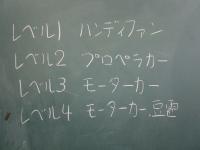 レベル1 ハンディファン
レベル2 プロペラカー
レベル3 モーターカー
レベル4 モーターカー,豆電